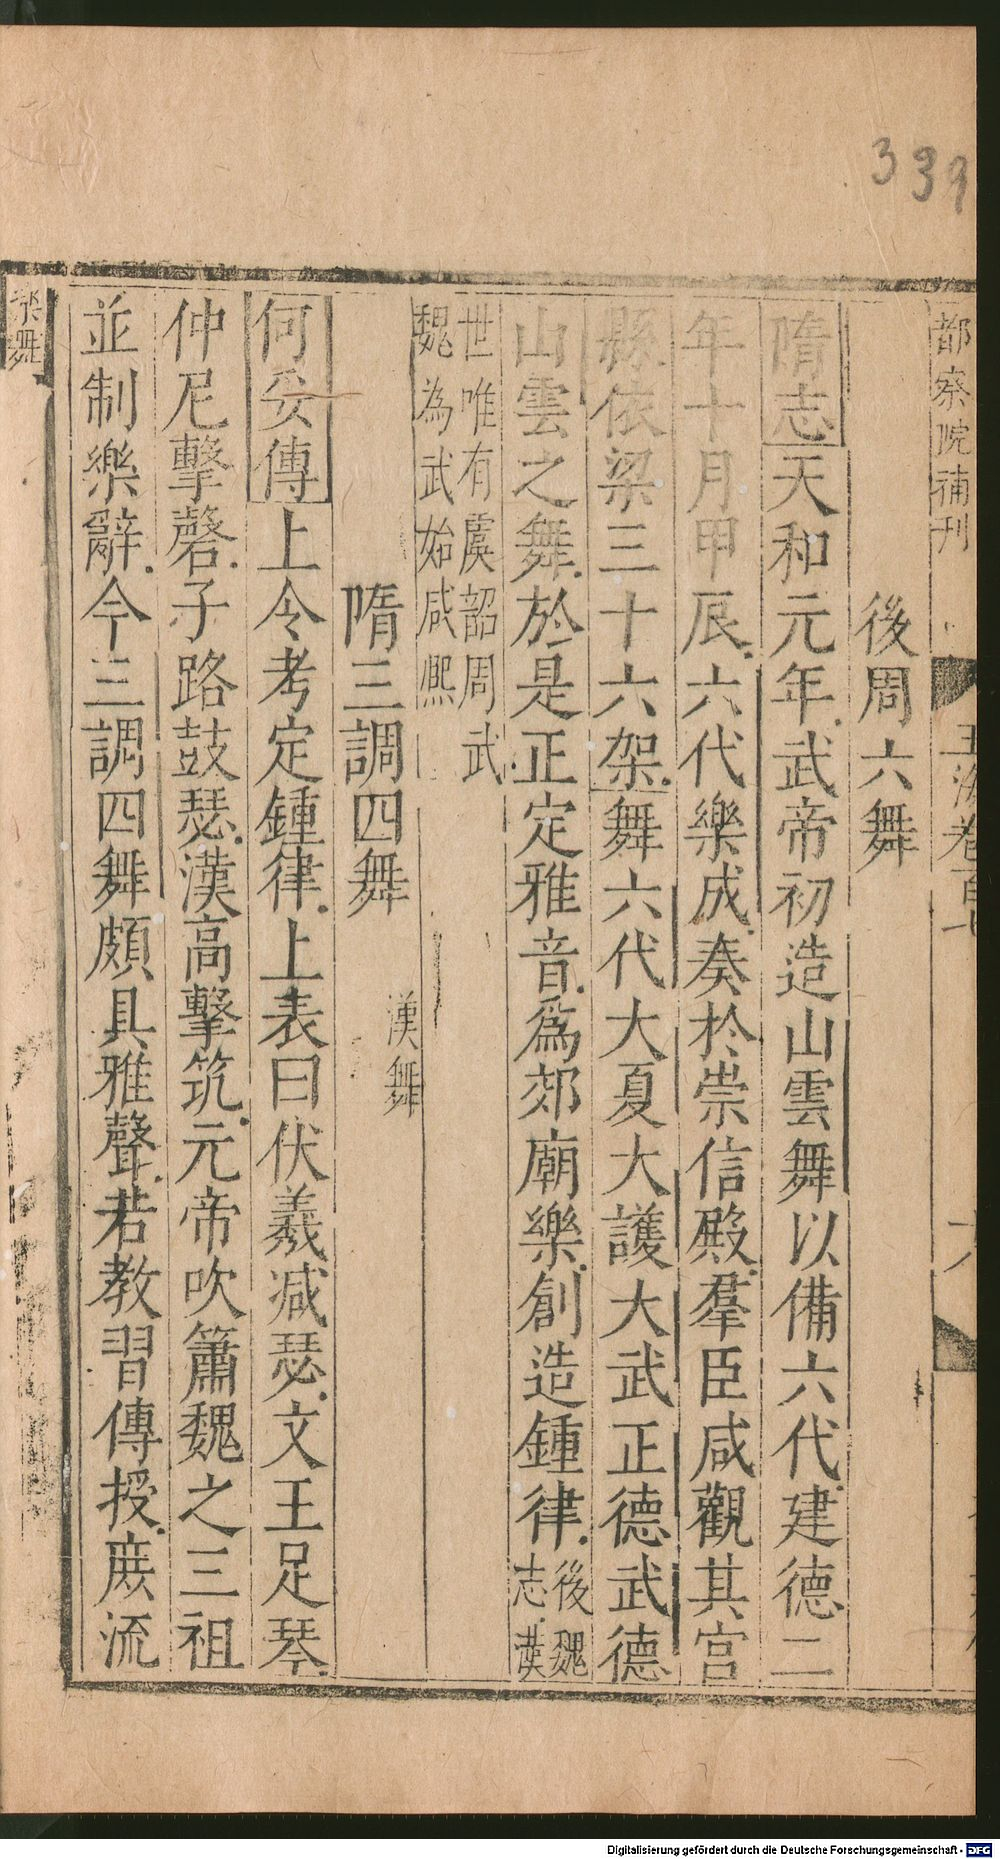 339
都察院補刊
玉海卷百七
十六
後周六舞
隋志天和元年武帝初造山雲舞以備六代建德二
年十月甲辰六代樂成奏於崇信殿羣臣咸觀其宫
縣依梁三十六架舞六代大夏大護大武正德武德
山雲之舞於是正定雅音爲郊廟樂創造鍾律後魏志漢
世唯有虞韶周武
魏為武始咸熙
隋三調四舞 漢舞
何妥傳上令考定鍾律上表曰伏羲减瑟文王足琴
仲尼擊磬子路鼓瑟漢高擊筑元帝吹簫魏之三祖
並制樂辭今三調四舞頗具雅聲若教習傳授庶流
樂舞
Digitalisierung gefördert durch die Deutsche Forschungsgemeinschaft - DFG